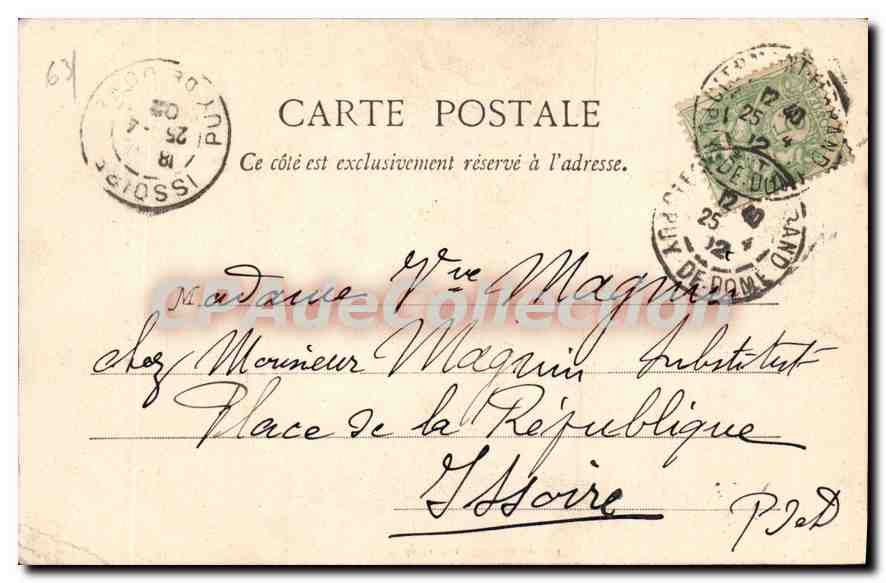 63
PUY DE DOME
18
25 -4
02
ISSOIRE
CARTE POSTALE
Ce côté est exclusivement réservé à l'adresse.
CLERMONT-FERRAND
12 40
25 4
PUY-DE-DOME
12 40
25
PUY-DE-DOME
CPAdeCollection
Madame Vve Magnin
chez Monsieur Magnin Substitut
Place de la République
Issoire
P de D